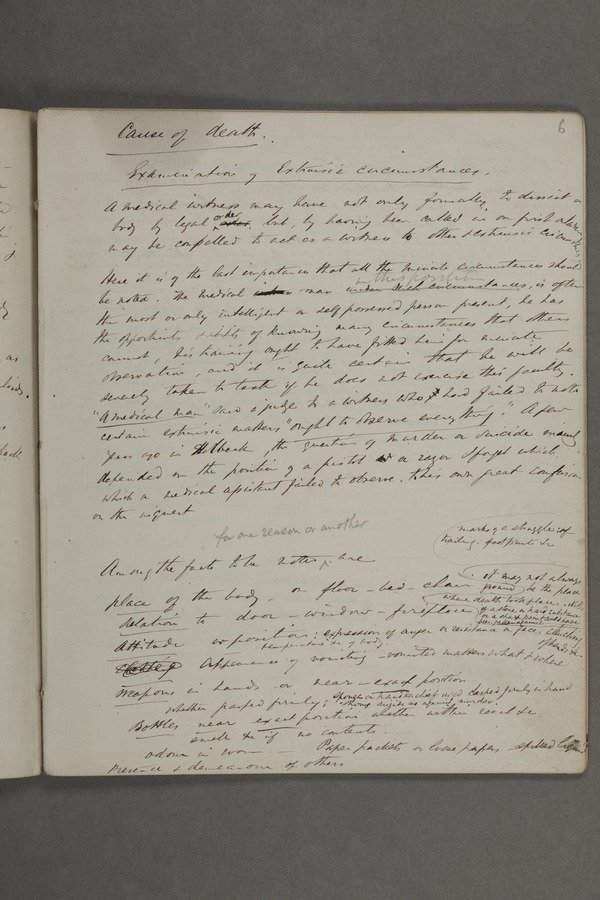 6
Cause of death.
Examination of Extrinsic circumstances.
A medical witness may have not only formally to dissect a
body by legal order but, by having been called in on first alarm
may be compelled to act as a witness to other extrinsic circumstances
Here it is of the last importance that all the minute circumstances should
in this position
be noted. The medical man under such circumstances, is often
the most or only intelligent or self possessed person present, he has
the opportunity & ability of knowing many circumstances that others
cannot, his training ought to have fitted him for minute
observation, and it is quite certain that he will be
severely taken to task if he does not exercise this faculty.
"A medical man" said a judge to a witness who had failed to note
certain extrinsic matters "ought to observe everything". A few
years ago in the question of murder or suicide
depended on the position of a pistol or a razor I forget which
which a medical assistant failed to observe, to his own great confusion
on the inquest
for one reason or another
marks of a struggle or of
trailing: footprints &c
Among the facts to be noted, are
place of the body - on floor - bed - chair
it may not always
be the place
where death took place
Relation to door - window - fireplace
if a stone or hard substance
or a sharp point
Attitude or position: expression of anger or resistance in face. Clenching
of hands &c.
temperature &c of body.
Clothing Appearance of vomiting - vomited matters what & where
Weapons in hands or near - exact position
whether grasped firmly;
Bottles near exact position whether within reach &c
smell &c if no contents.
odour in room - Paper packets or loose papers - spilled liquid
Presence & demeanour of others